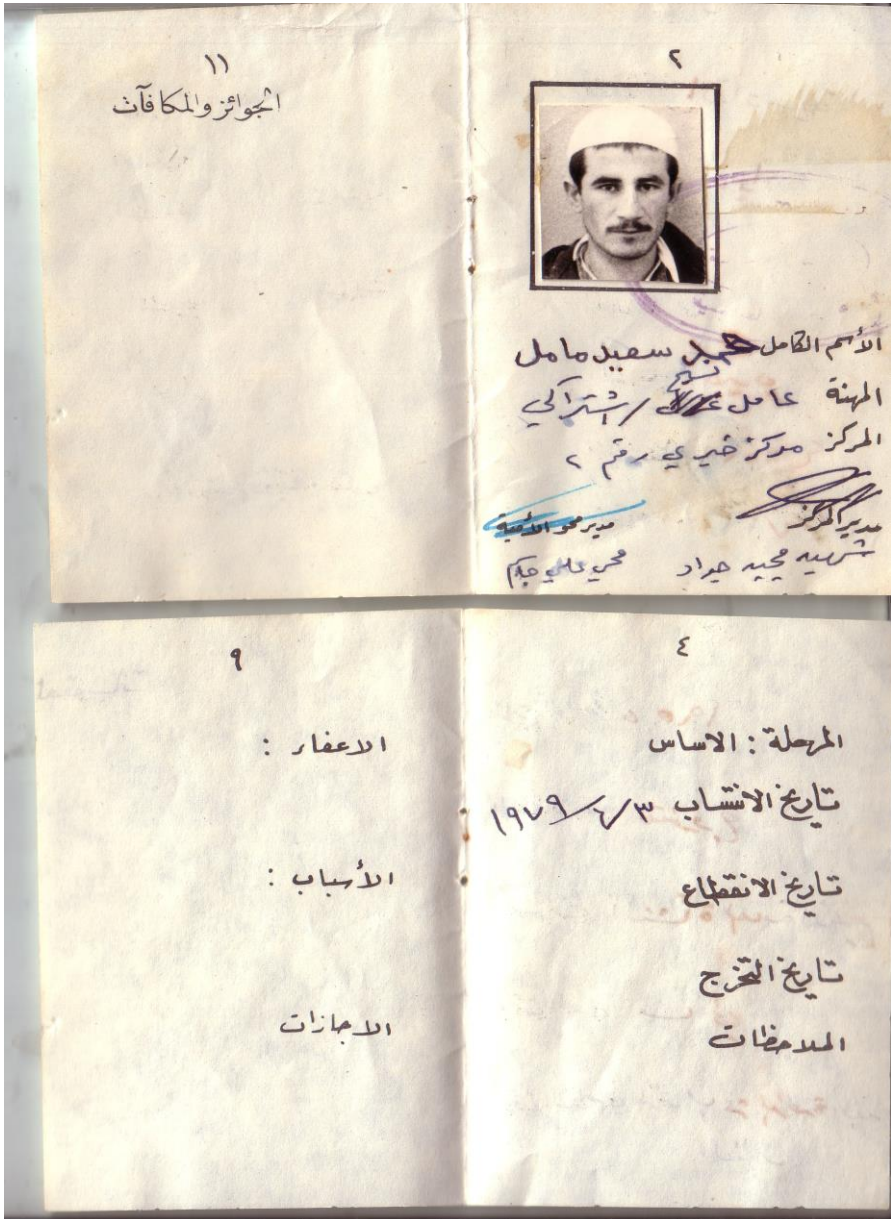 ٢
الأسم الكامل سعيد مامل
المهنة عامل / اشتراكي
المركز مركز خيري رقم ٢
مدير المركز
مدير محو الأمية
مجيد جواد
محي علي
١١
الجوائز والمكافآت
٤
المرحلة : الاساس
تاريخ الانتساب ٣/٤/١٩٧٩
تاريخ الانقطاع
تاريخ التخرج
الملاحظات
٩
الاعفار :
الأسباب :
الاجازات